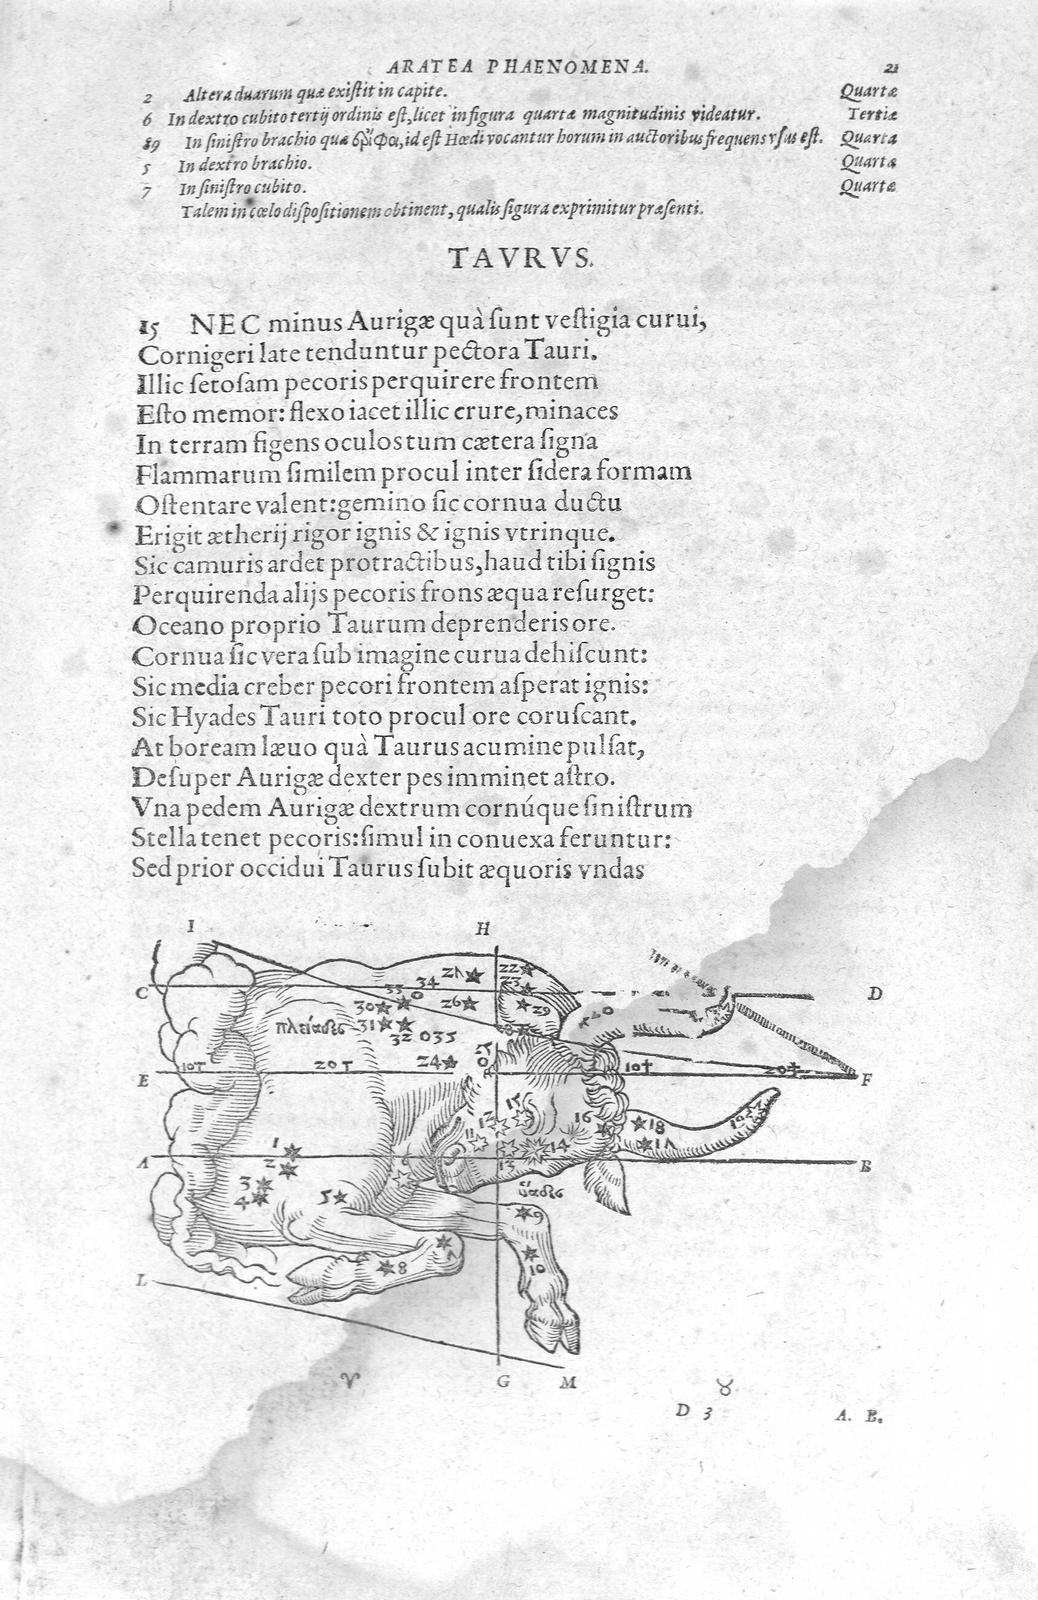 ARATEA PHAENOMENA. 21
2 Altera duarum quæ existit in capite. Quartæ
6 In dextro cubito tertij ordinis est, licet in figura quartæ magnitudinis videatur. Tertiæ
89 In sinistro brachio quæ ἔριφοι, id est Hœdi vocantur horum in auctoribus frequens vsus est. Quarta
5 In dextro brachio. Quartæ
7 In sinistro cubito. Quartæ
Talem in cœlo dispositionem obtinent, qualis figura exprimitur præsenti.
TAVRVS.
15 NEC minus Aurigæ quà sunt vestigia curui,
Cornigeri late tenduntur pectora Tauri.
Illic setosam pecoris perquirere frontem
Esto memor: flexo iacet illic crure, minaces
In terram figens oculos tum cætera signa
Flammarum similem procul inter sidera formam
Ostentare valent: gemino sic cornua ductu
Erigit ætherij rigor ignis & ignis vtrinque.
Sic camuris ardet protractibus, haud tibi signis
Perquirenda alijs pecoris frons æqua resurget:
Oceano proprio Taurum deprenderis ore.
Cornua sic vera sub imagine curua dehiscunt:
Sic media creber pecori frontem asperat ignis:
Sic Hyades Tauri toto procul ore coruscant.
At boream læuo quà Taurus acumine pulsat,
Desuper Aurigæ dexter pes imminet astro.
Vna pedem Aurigæ dextrum cornúque sinistrum
Stella tenet pecoris: simul in conuexa feruntur:
Sed prior occidui Taurus subit æquoris vndas
I H
C 33 34 21 22 23 D
30 26 29
πλείαδες 31 32 035
E 10 20 24 10 20 F
1 2 11 12 15 16 18 19
A 13 14 17 B
3 4 5 6 ὕαδες
7 8 9
L 10
♈ G M ♉
D 3 A. B.